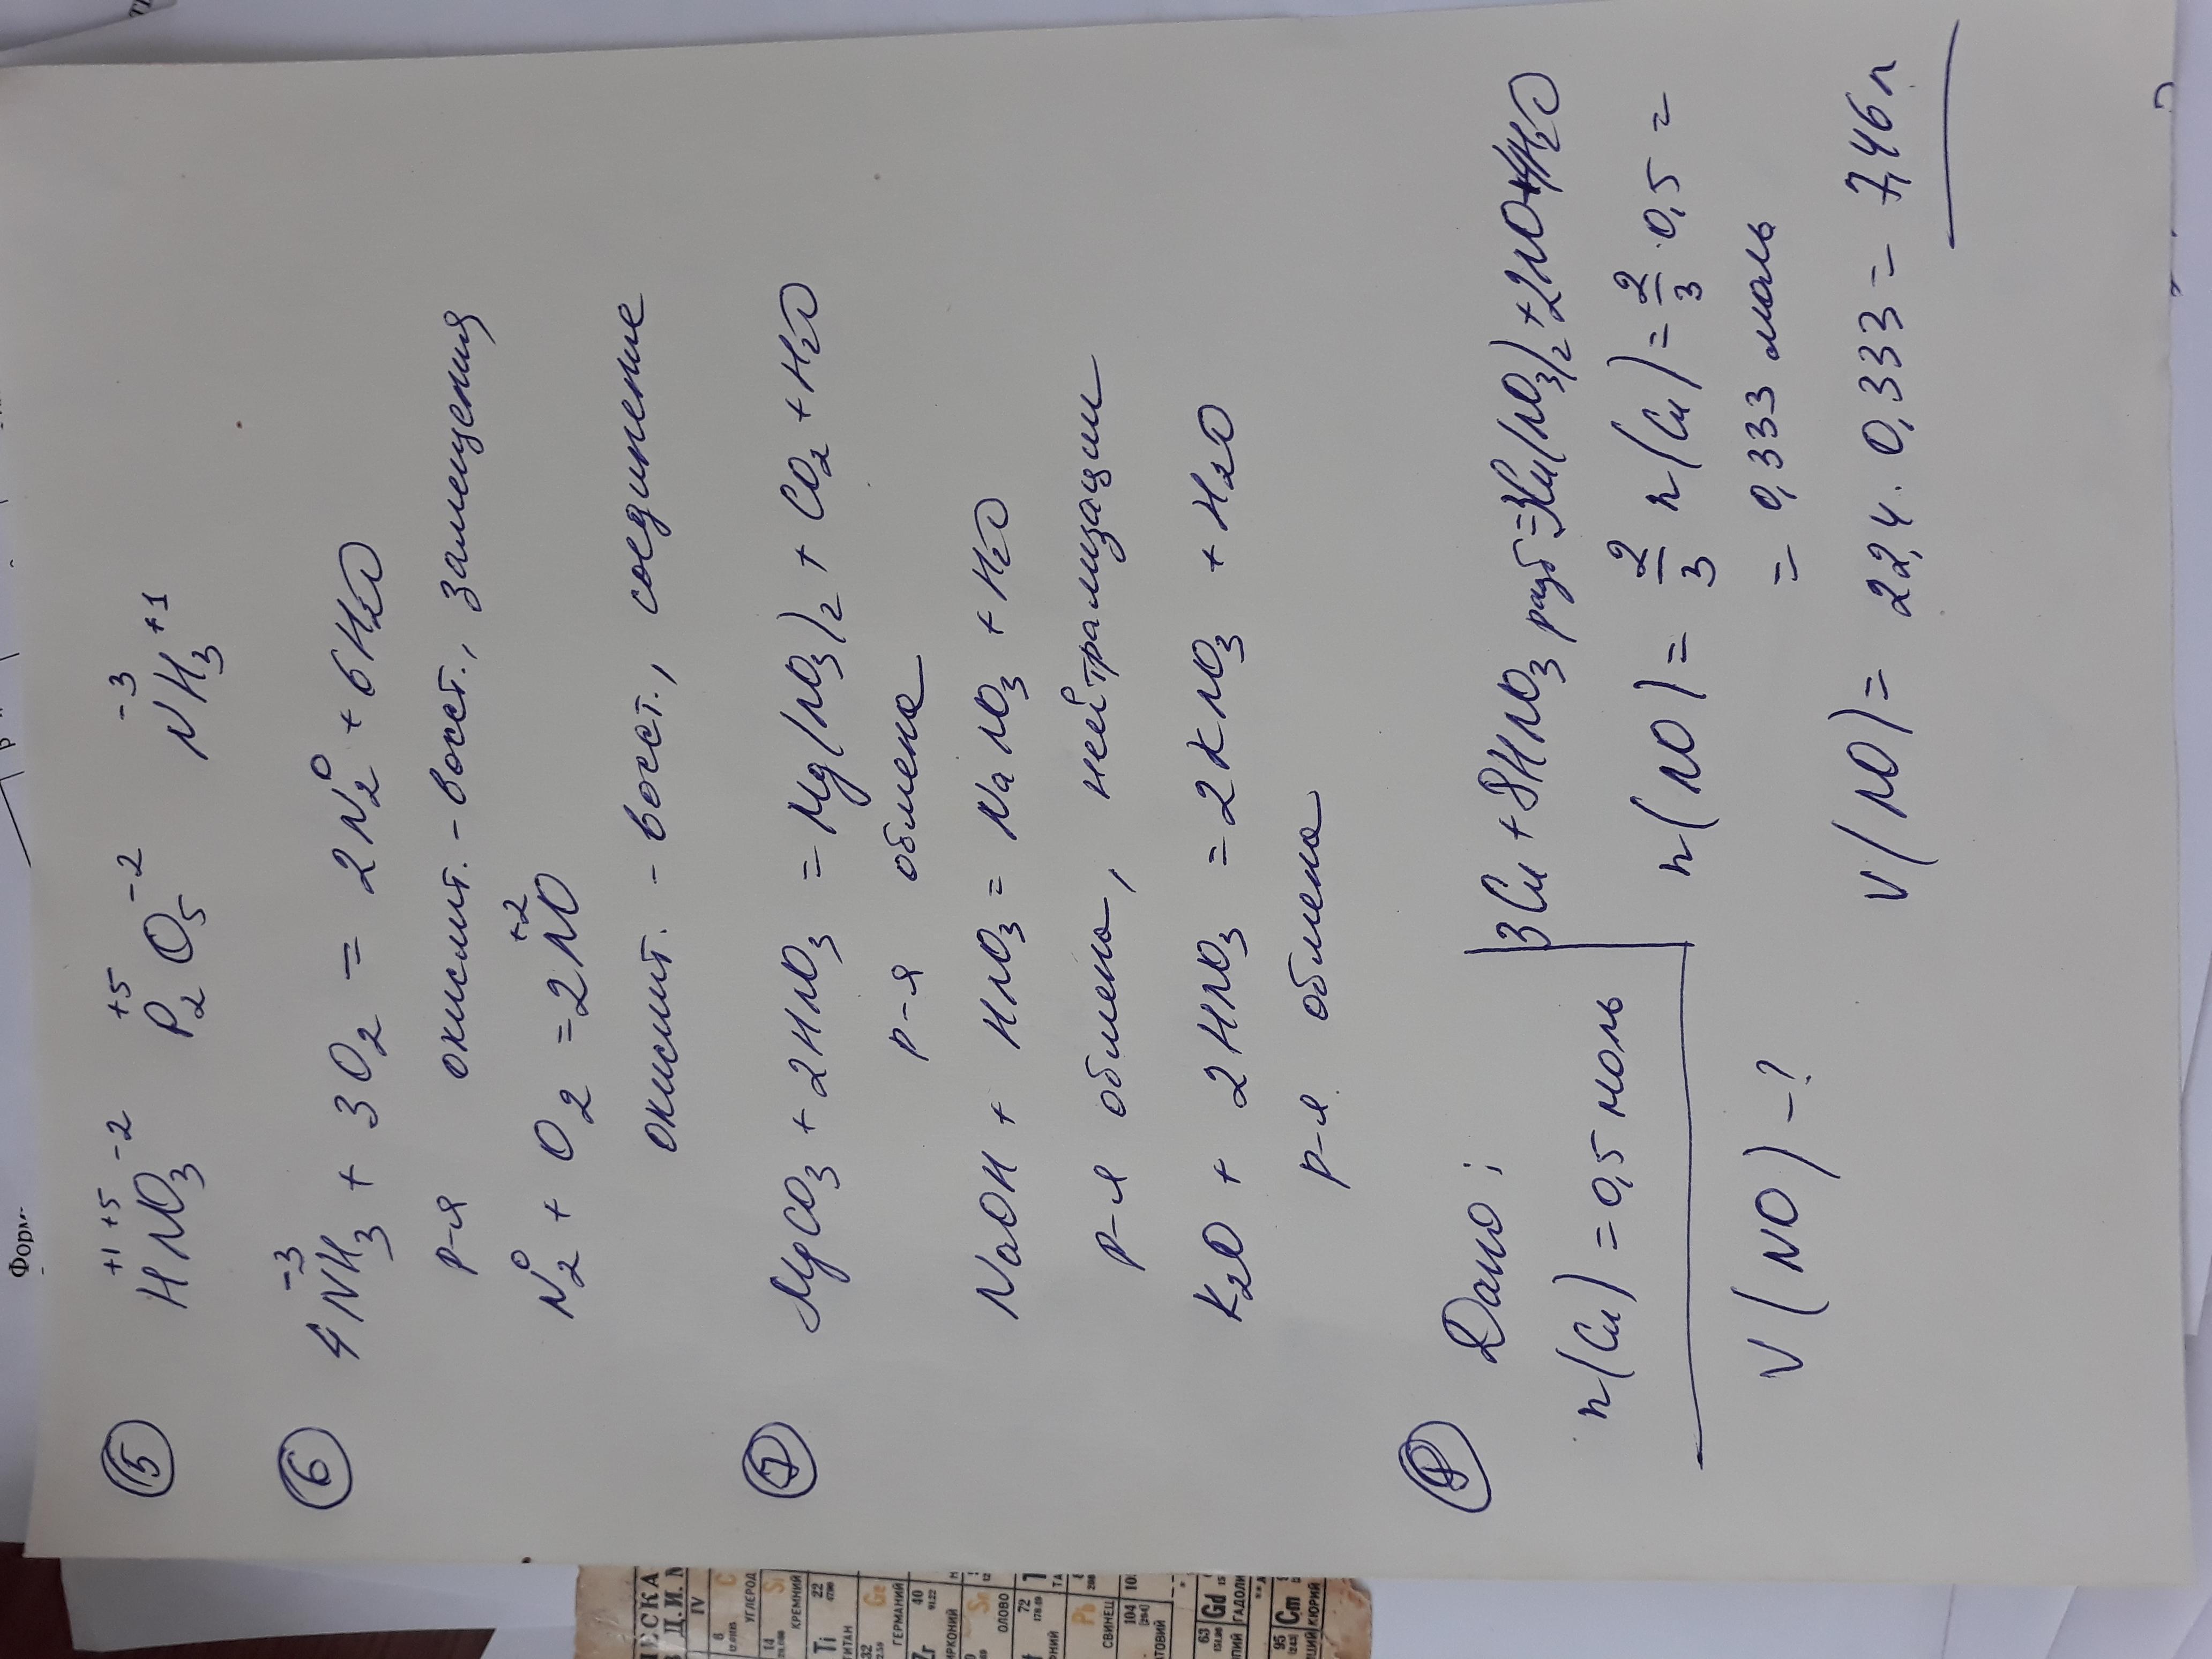 Форм
⑤ H⁺¹N⁺⁵O₃⁻² P₂⁺⁵O₅⁻² N⁻³H₃⁺¹
⑥ 4N⁻³H₃ + 3O₂ = 2N₂⁰ + 6H₂O
р-я окислит.-восст., замещения
N₂⁰ + O₂ = 2N⁺²O
окислит.-восст., соединение
⑦ MgCO₃ + 2HNO₃ = Mg(NO₃)₂ + CO₂ + H₂O
р-я обмена
NaOH + HNO₃ = NaNO₃ + H₂O
р-я обмена, нейтрализации
K₂O + 2HNO₃ = 2KNO₃ + H₂O
р-я обмена
⑧ Дано: 3Cu + 8HNO₃ разб = 3Cu(NO₃)₂ + 2NO + 4H₂O
n(Cu) = 0,5 моль n(NO) = 2/3 n(Cu) = 2/3 · 0,5 =
= 0,333 моль
V(NO) - ? V(NO) = 22,4 · 0,333 = 7,46 л
ЕСКА
Д.И.
IV
6 C
УГЛЕРОД
14 Si
КРЕМНИЙ
Ti 22
ТИТАН
32 Ge
ГЕРМАНИЙ
Zr 40
91.22
ИРКОНИЙ
Sn
ОЛОВО
72
178.49
Pb
СВИНЕЦ
104
[264]
63 Gd
ГАДОЛИ
95 Cm
КЮРИЙ